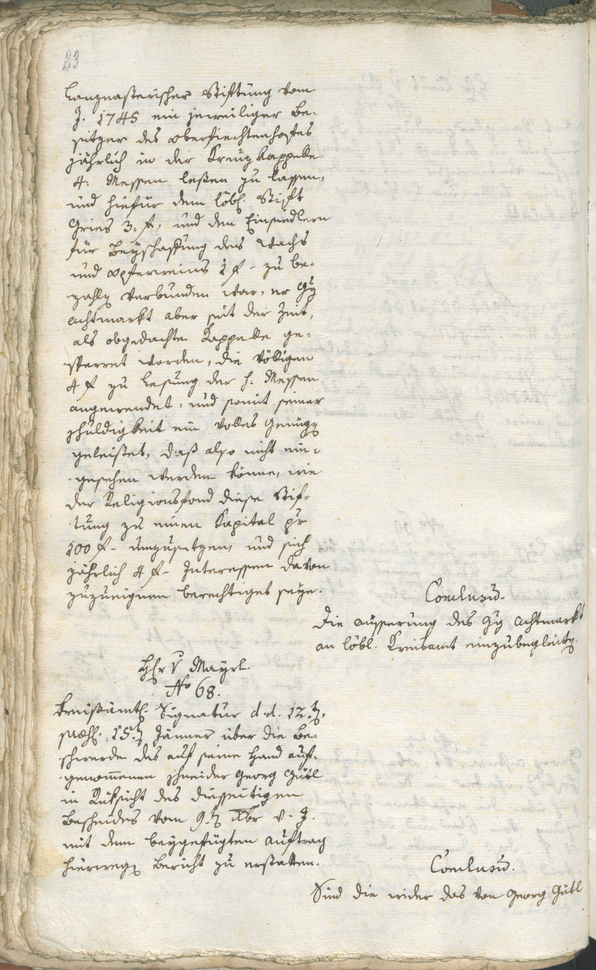 23
Langnasterischer Stiftung vom
J. 1745 ein jeweiliger Be-
sitzer des oberfiechtenhofes
jährlich in der Kreuzkappelle
4. Messen lesen zu lassen,
und hiefür dem löbl. Stift
Gries 3. f, und den Einsiedlern
für Beyschaffung des Wachs
und opferweins 1 f - zu be-
zahlen verbunden war, er Hg
achtmarkt aber seit der Zeit,
als obgedachte Kappelle ge-
sperret worden, die völligen
4 f zu Lesung der h. Messen
angewendet, und somit seiner
schuldigkeit ein volles Genügen
geleistet, daß also nicht ein-
gesehen werden könne, wie
der Religionsfond diese Stif-
tung zu einem Kapital pr
100 f - umzusetzen, und sich
jährlich 4 f - Interessen davon
zuzueignen berechtiget seye.
Conclusu.
Die äusserung des Hg achtmarkt
an löbl. Kreisamt einzubegleiten.
Hr v Mayrl.
No 68.
Kreisämtl. Signatur d. d. 12.
praes. 15. Jänner über die Be-
schwerde des auf seine Hand auf-
genommenen Schneider Georg Gütl
in Rücksicht des diesseitigen
Bescheides vom 9. Xbr v. J.
mit dem beygefügten Auftrag
hierwegen Bericht zu erstatten.
Conclusu.
Sind die wider das von Georg Gütl